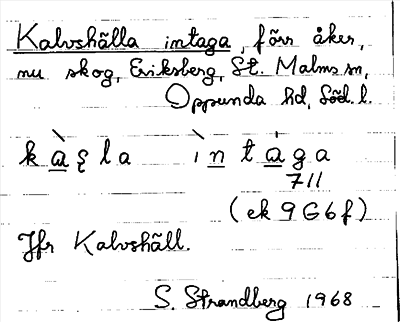 Kalvshälla intaga, förr åker,
nu skog, Eriksberg, St. Malms sn,
Oppunda hd, Söd. l.
kàʂla ìntàga
711
(ek 9G6f)
Jfr Kalvshäll.
S. Strandberg 1968